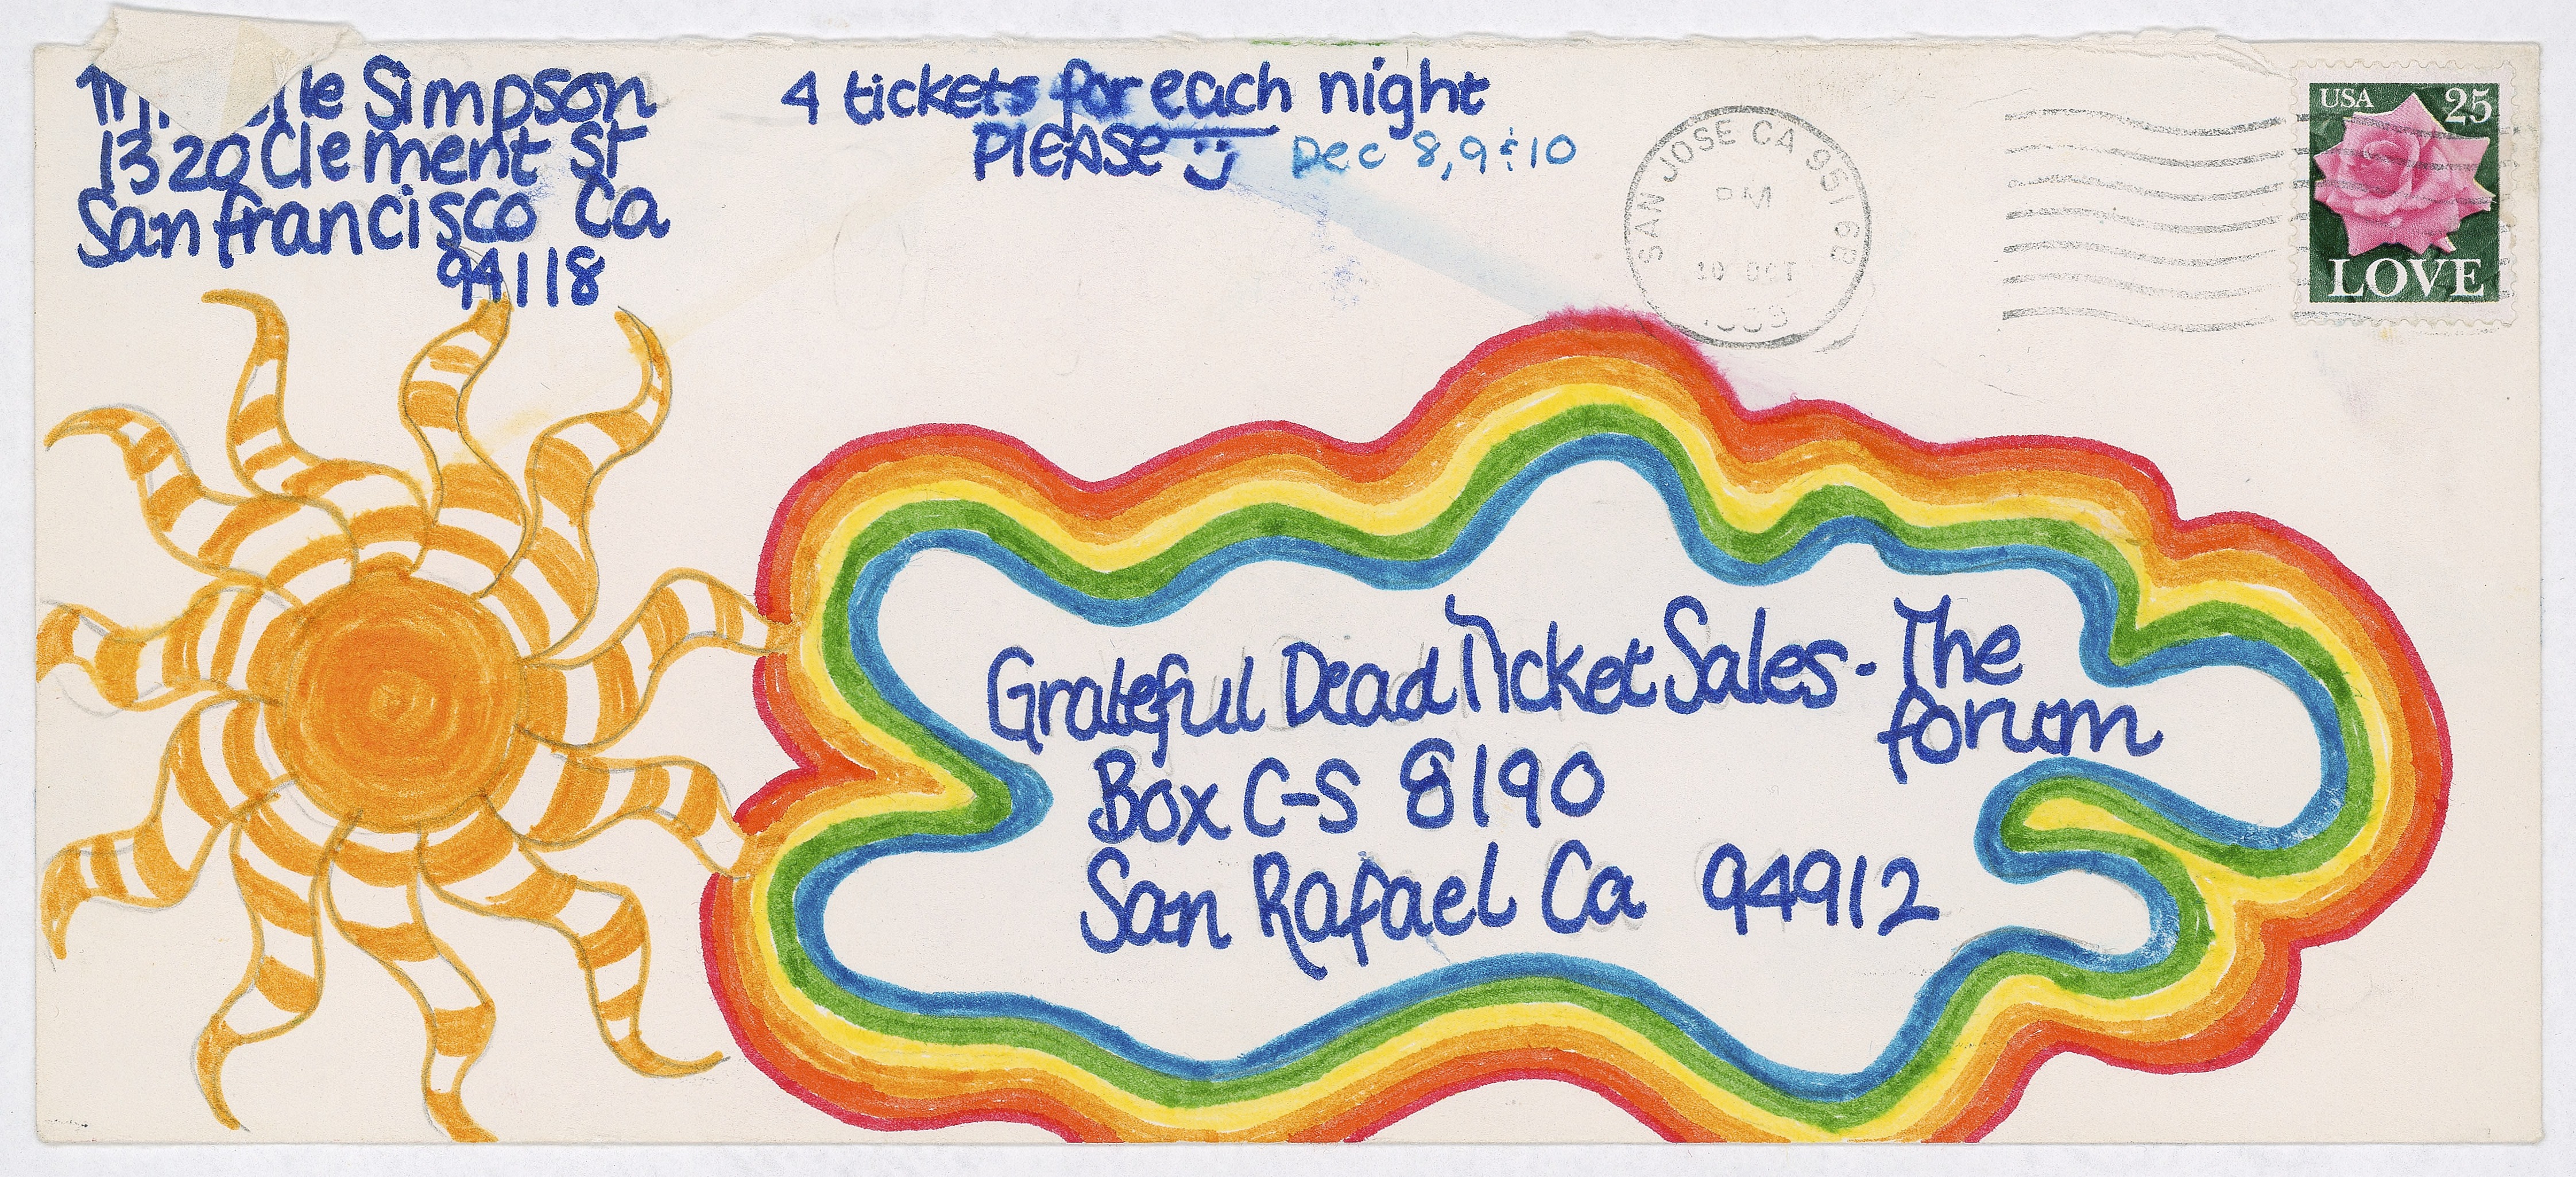 Simpson
1320 Clement St
San francisco Ca
94118
4 tickets for each night
PlEASE Dec 8, 9 & 10
SAN JOSE CA 951 6B
PM
10 OCT
USA 25
LOVE
Grateful Dead Ticket Sales - The
forum
Box C-S 8190
San Rafael Ca 94912